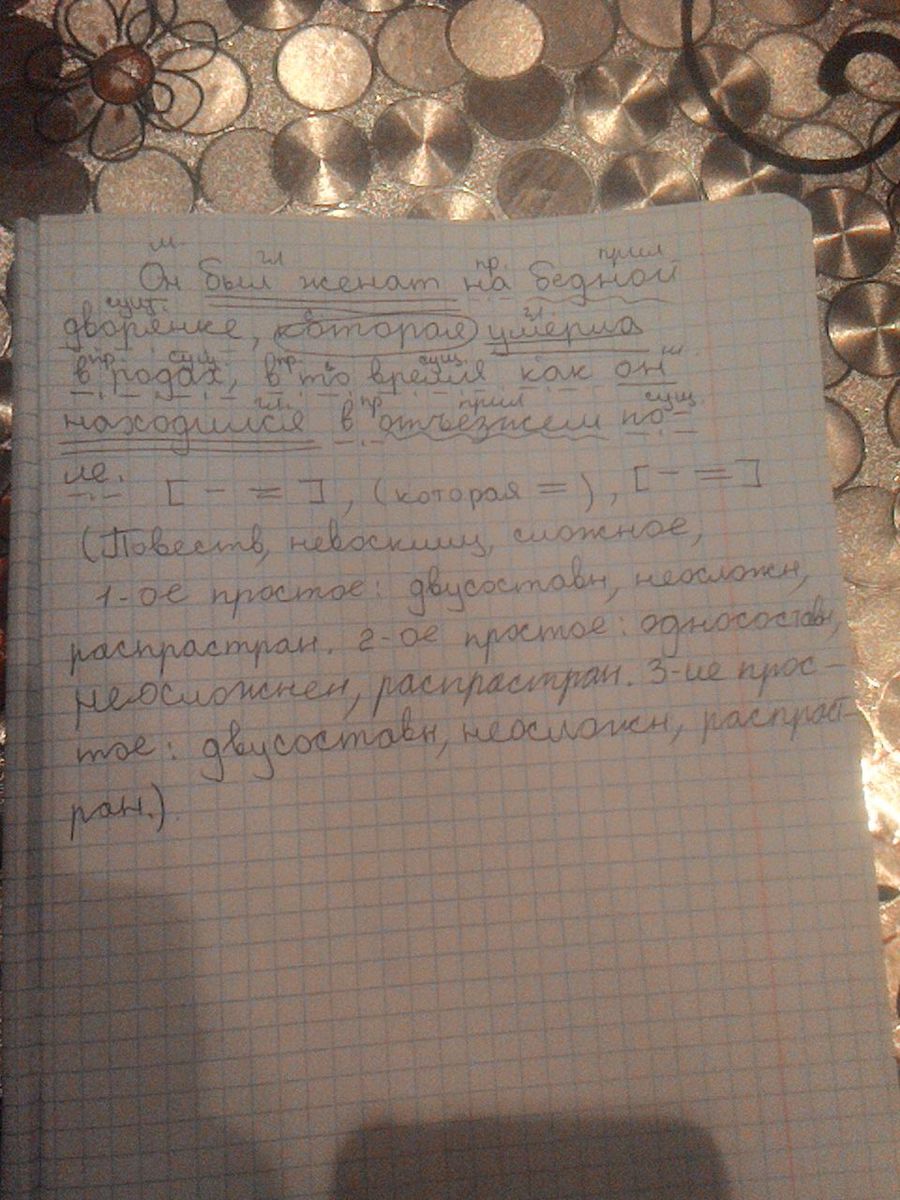 м. гл пр. прил
Он был женат на бедной
сущ. гл.
дворянке, которая умерла
пр. сущ. пр. сущ. м.
в родах, в то время как он
гл. пр прил сущ.
находился в отъезжем по-
ле. [ - = ], (которая = ), [ - = ]
(Повеств, невосклиц, сложное,
1-ое простое: двусоставн, неосложн,
распрастран. 2-ое простое: односоставн,
неосложнен, распрастран. 3-ие прос-
тое: двусоставн, неосложн, распрост-
ран.)